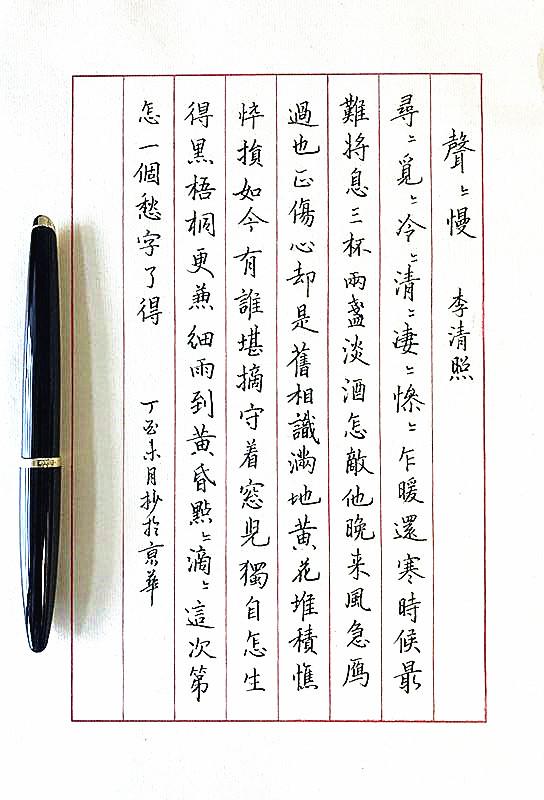 聲〻慢 李清照
尋〻覓〻冷〻清〻凄〻惨〻乍暖還寒時候最
難将息三杯兩盞淡酒怎敵他晚来風急雁
過也正傷心却是舊相識滿地黄花堆積憔
悴損如今有誰堪摘守着窓児獨自怎生
得黒梧桐更兼細雨到黄昏點〻滴〻這次第
怎一個愁字了得 丁酉未月抄於京華